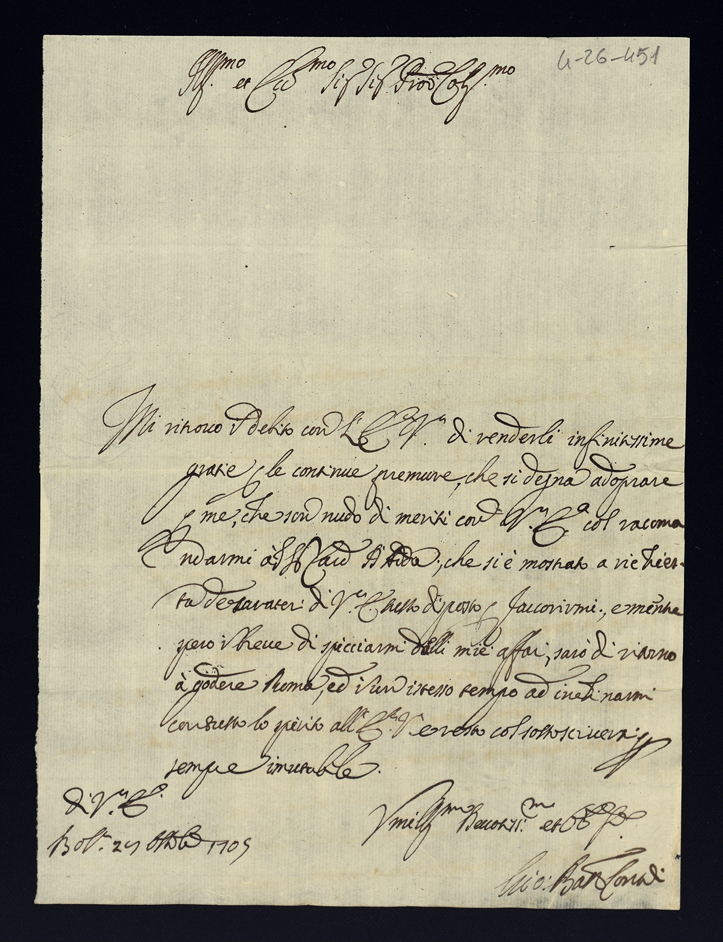 4-26-451
Ill.mo et Ecc.mo Sig.r Sig.r Pron Col.mo
Mi ritrovo in debito con l'E. V.ra di renderli infinitissime
gratie p le continue premure, che si degna adoprare
p me, che son nudo di meriti con V.ra E.a col racoma
ndarmi che si è mostrato a richies-
ta de di V.ra E. tutto disposto p favorirmi, e mentre
pero in breve di spicciarmi delli miei affari, sarò di ritorno
à godere Roma, ed in un istesso tempo ad inchinarmi
con tutto lo spirito all'E. V. e resto col sottoscrivermi
sempre imutabile.
di V.ra E.a
Bol.a 29 1705
Umiliss.mo Devotiss.mo et Obb.
Gio: Batt